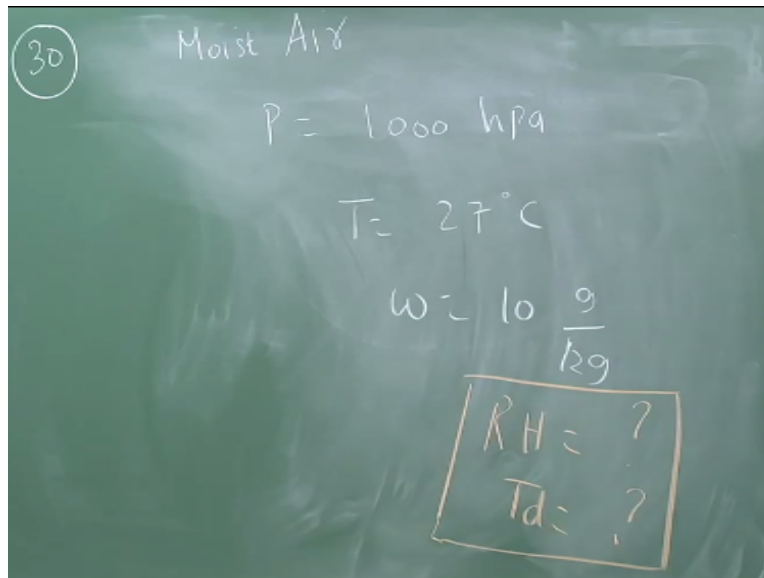 30
Moist Air
P = 1000 hpa
T = 27°C
w = 10 g/kg
RH = ?
Td = ?